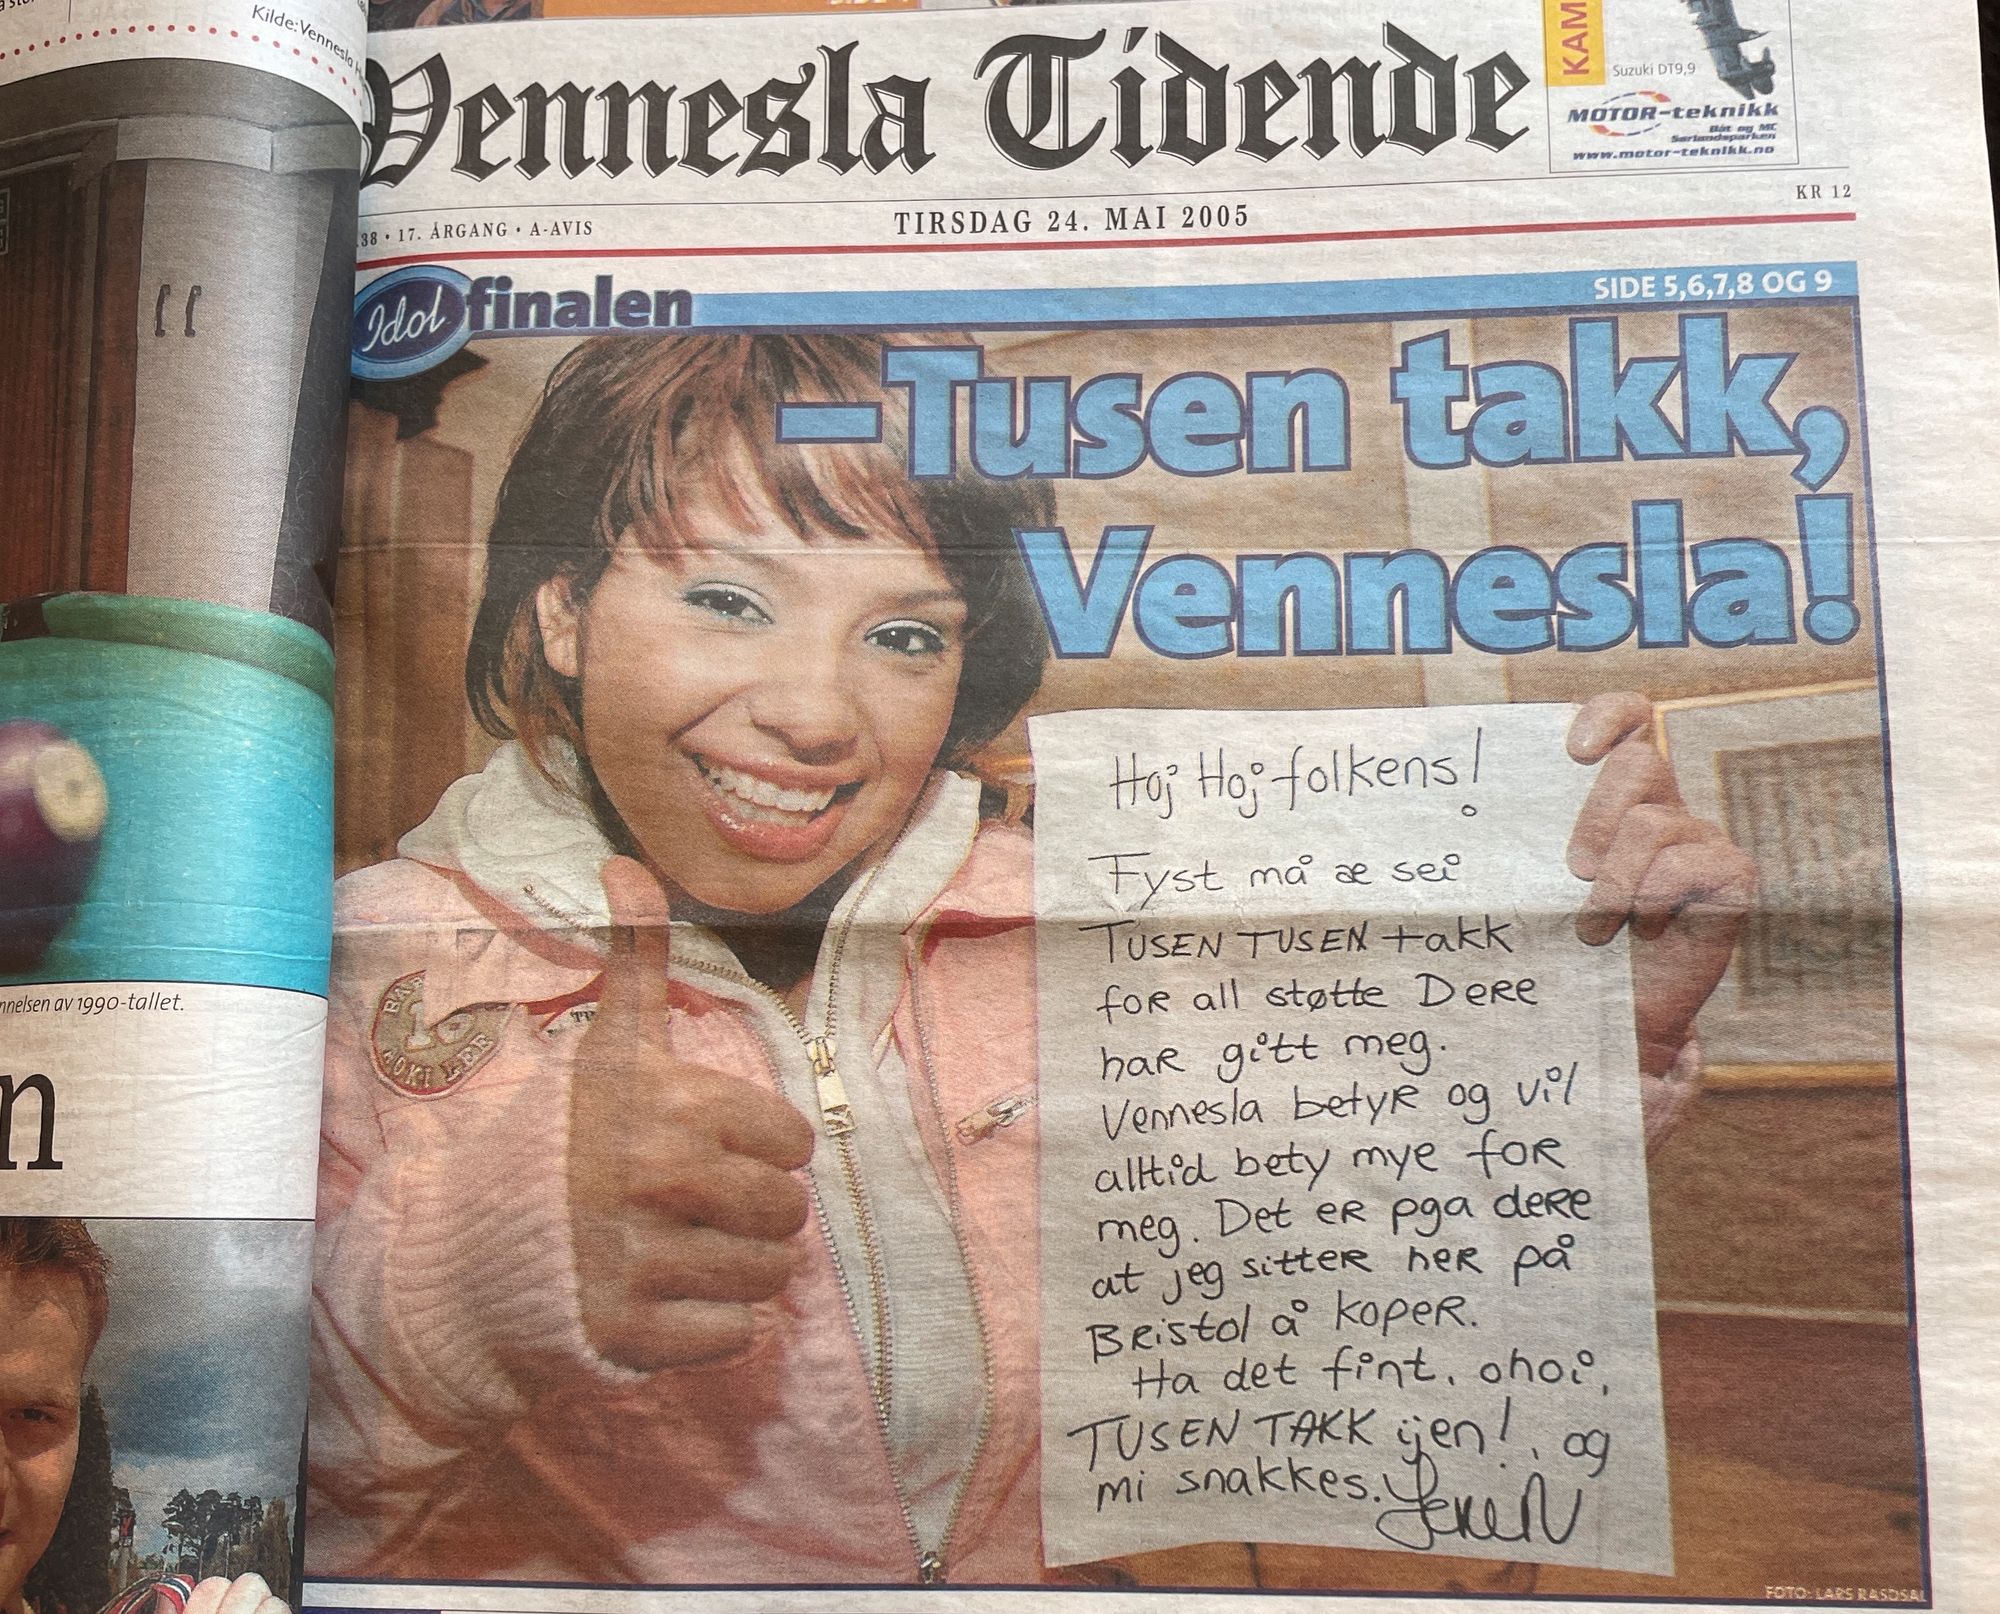 Kilde: Vennesla
SIDE
Vennesla Tidende
KAM
Suzuki DT9,9
MOTOR-teknikk
Båt og MC
Sørlandsparken
www.motor-teknikk.no
38 • 17. ÅRGANG • A-AVIS
TIRSDAG 24. MAI 2005
KR 12
Idol finalen
SIDE 5,6,7,8 OG 9
–Tusen takk,
Vennesla!
Hoj Hoj folkens!
Fyst må æ sei
TUSEN TUSEN takk
for all støtte Dere
har gitt meg.
Vennesla betyr og vil
alltid bety mye for
meg. Det er pga dere
at jeg sitter her på
Bristol å koper.
Ha det fint, ohoi,
TUSEN TAKK ijen!, og
mi snakkes.
10
nnelsen av 1990-tallet.
n
FOTO: LARS